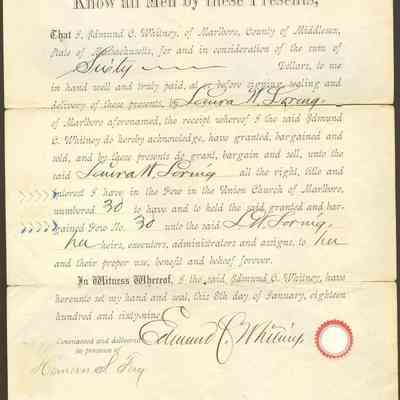 Know all Men by these Presents,
That I, Edmund C. Whitney, of Marlboro, County of Middlesex,
State of Massachusetts, for and in consideration of the sum of
Sixty Dollars, to me
in hand well and truly paid, at or before signing, sealing and
delivery of these presents, by Laura W. Loring
of Marlboro aforenamed, the receipt whereof I the said Edmund
C. Whitney do hereby acknowledge, have granted, bargained and
sold, and by these presents do grant, bargain and sell, unto the
said Laura W. Loring all the right, title and
interest I have in the Pew in the Union Church of Marlboro,
numbered 30 to have and to hold the said granted and bar-
gained Pew No. 30 unto the said L. W. Loring,
her heirs, executors, administrators and assigns, to her
and their proper use, benefit and behoof forever.
In Witness Whereof, I the said, Edmund C. Whitney, have
hereunto set my hand and seal, this 8th day of January, eighteen
hundred and sixty-nine.
Edmund C. Whitney
Executed and delivered
in presence of